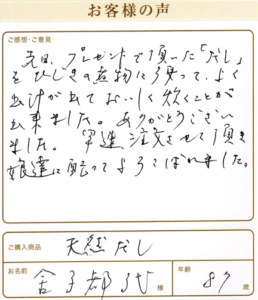 お客様の声
ご感想・ご意見
先日、プレゼントで頂いた「だし」
をひじきの煮物に使って、よく
出汁が出ておいしく炊くことが
出来ました。ありがとうござい
ました。早速注文させて頂き
娘達に配ってよろこばれました。
ご購入商品
天然だし
お名前
金子 様
年齢
87 歳